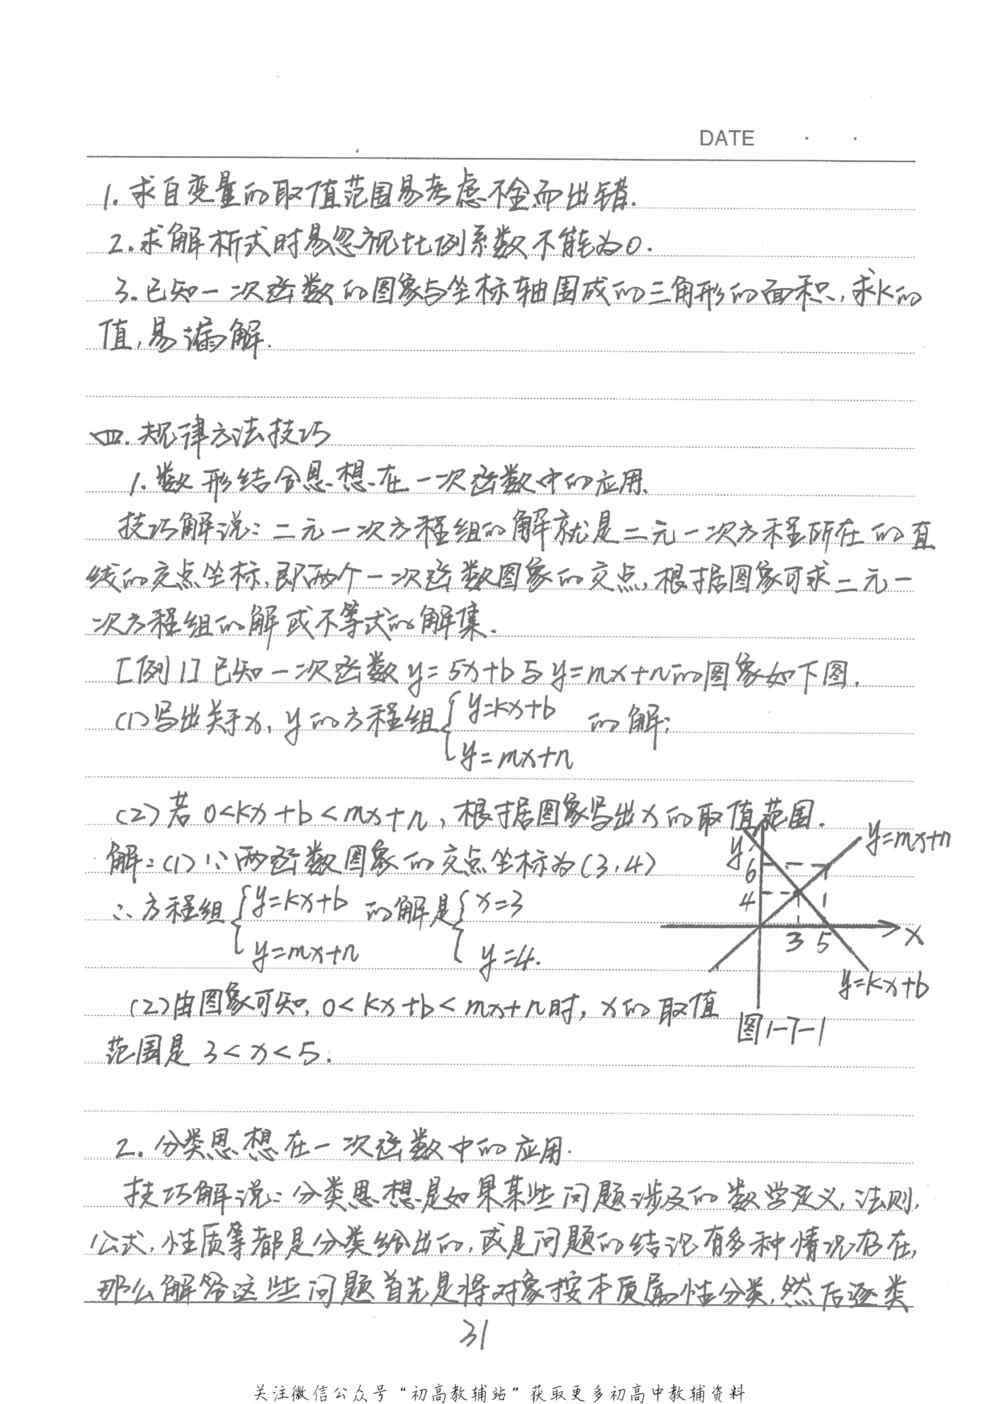 DATE · ·
1. 求自变量的取值范围易考虑不全而出错.
2. 求解析式时易忽视比例系数不能为0.
3. 已知一次函数的图象与坐标轴围成的三角形的面积,求k的
值,易漏解.
四. 规律方法技巧
1. 数形结合思想在一次函数中的应用.
技巧解说:二元一次方程组的解就是二元一次方程所在的直
线的交点坐标,即两个一次函数图象的交点,根据图象可求二元一
次方程组的解或不等式的解集.
[例1]已知一次函数y=5x+b与y=mx+n的图象如下图.
(1)写出关于x, y的方程组{y=kx+b 的解;
y=mx+n
(2)若0<kx+b<mx+n,根据图象写出x的取值范围.
解:(1)∵两函数图象的交点坐标为(3,4)
∴方程组{y=kx+b 的解是{x=3
y=mx+n y=4.
(2)由图象可知,0<kx+b<mx+n时,x的取值
范围是3<x<5.
y
6
4
3 5
x
y=mx+n
y=kx+b
图1-7-1
2. 分类思想在一次函数中的应用.
技巧解说:分类思想是如果某些问题涉及的数学定义,法则,
公式,性质等都是分类给出的,或是问题的结论有多种情况存在,
那么解答这些问题首先是将对象按本质属性分类,然后逐类
31
关注微信公众号“初高教辅站”获取更多初高中教辅资料